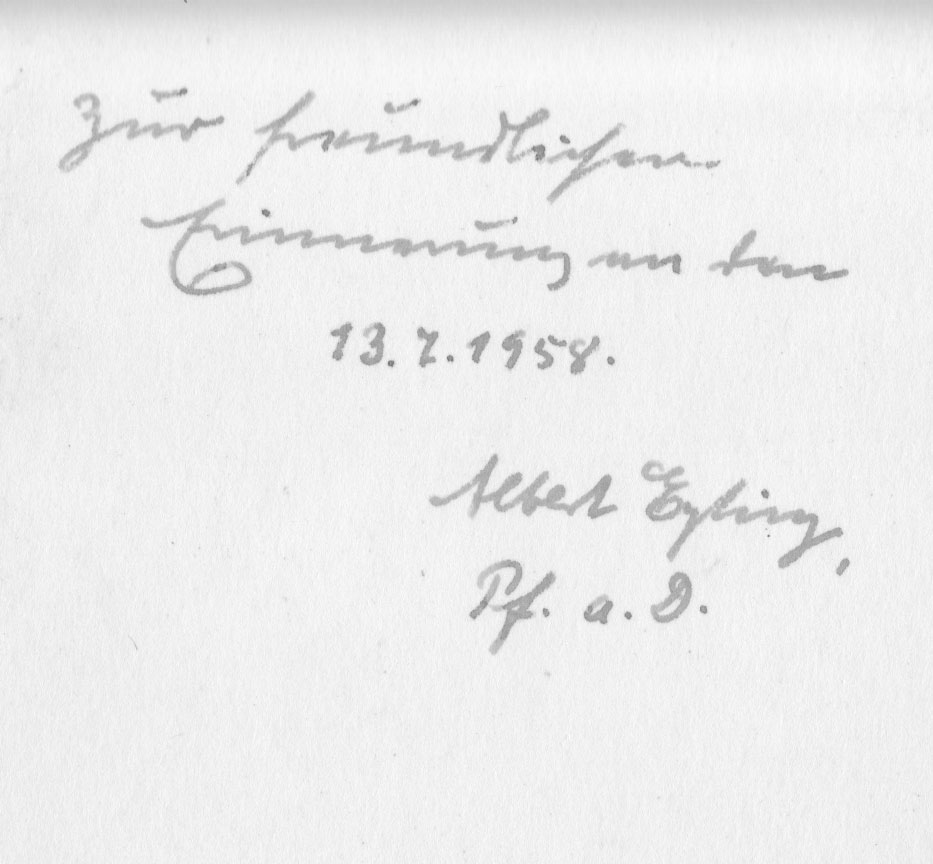 Zur freundlichen
Erinnerung an den
13.7.1958.
Albert Eyting,
Pf. a. D.